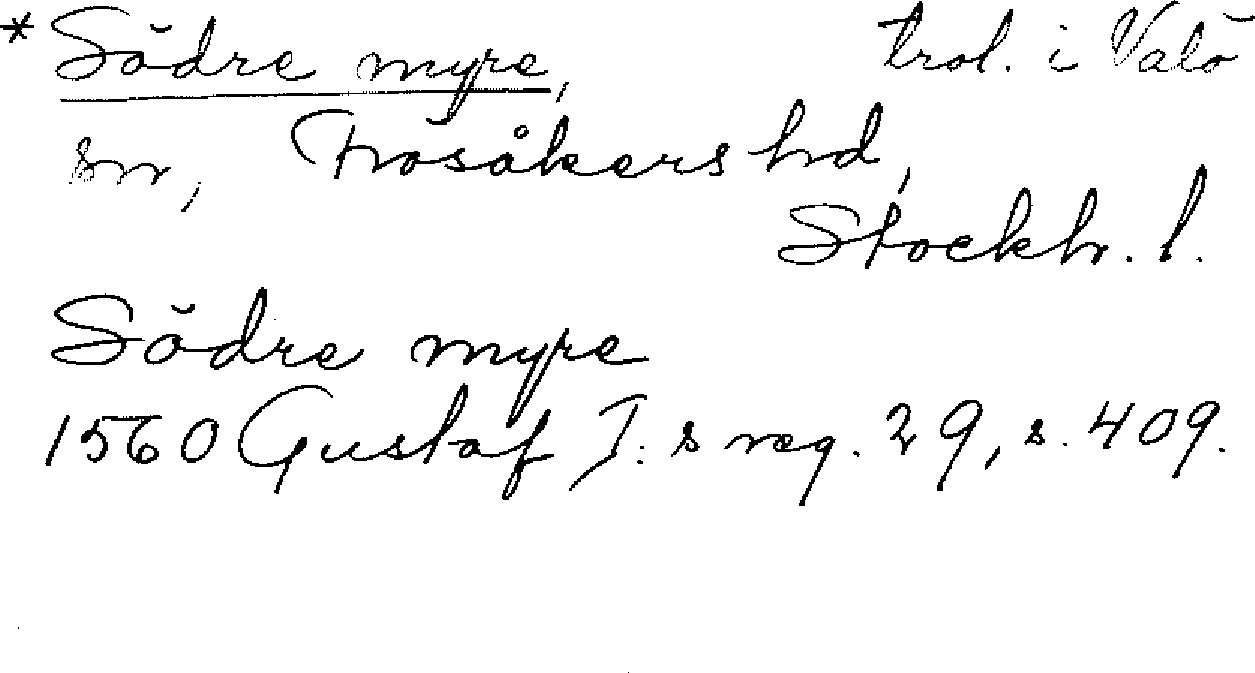 * Södre myre, trol. i Valö
sn, Frösåkers hd,
Stockh. l.
Södre myre
1560 Gustaf I:s reg. 29, s. 409.